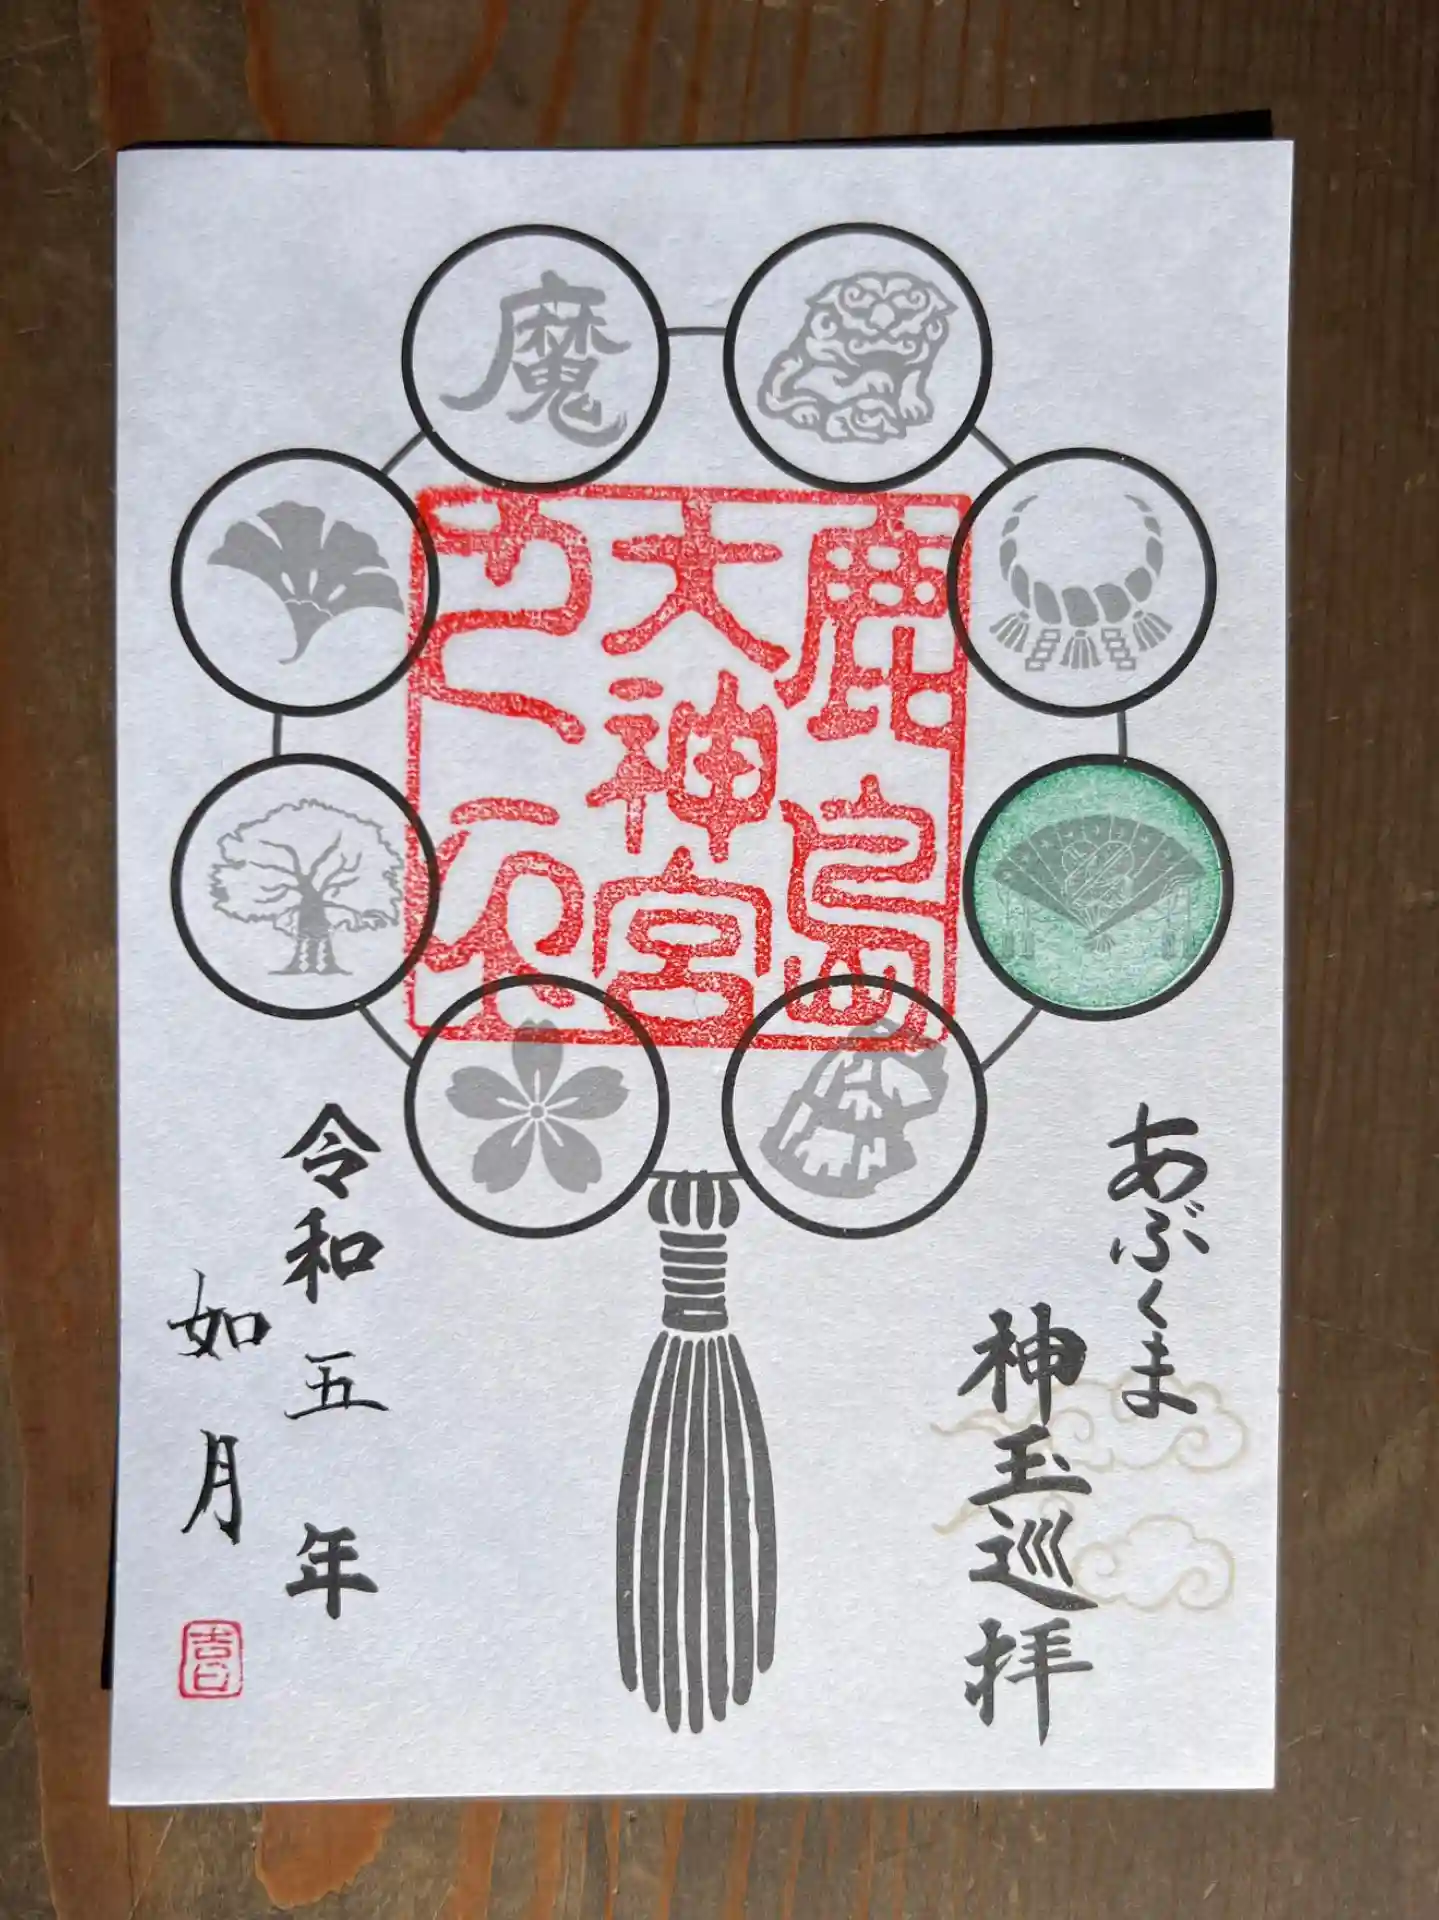 魔
鹿島
大神宮
之印
あぶくま
神玉巡拝
令和五年
如月